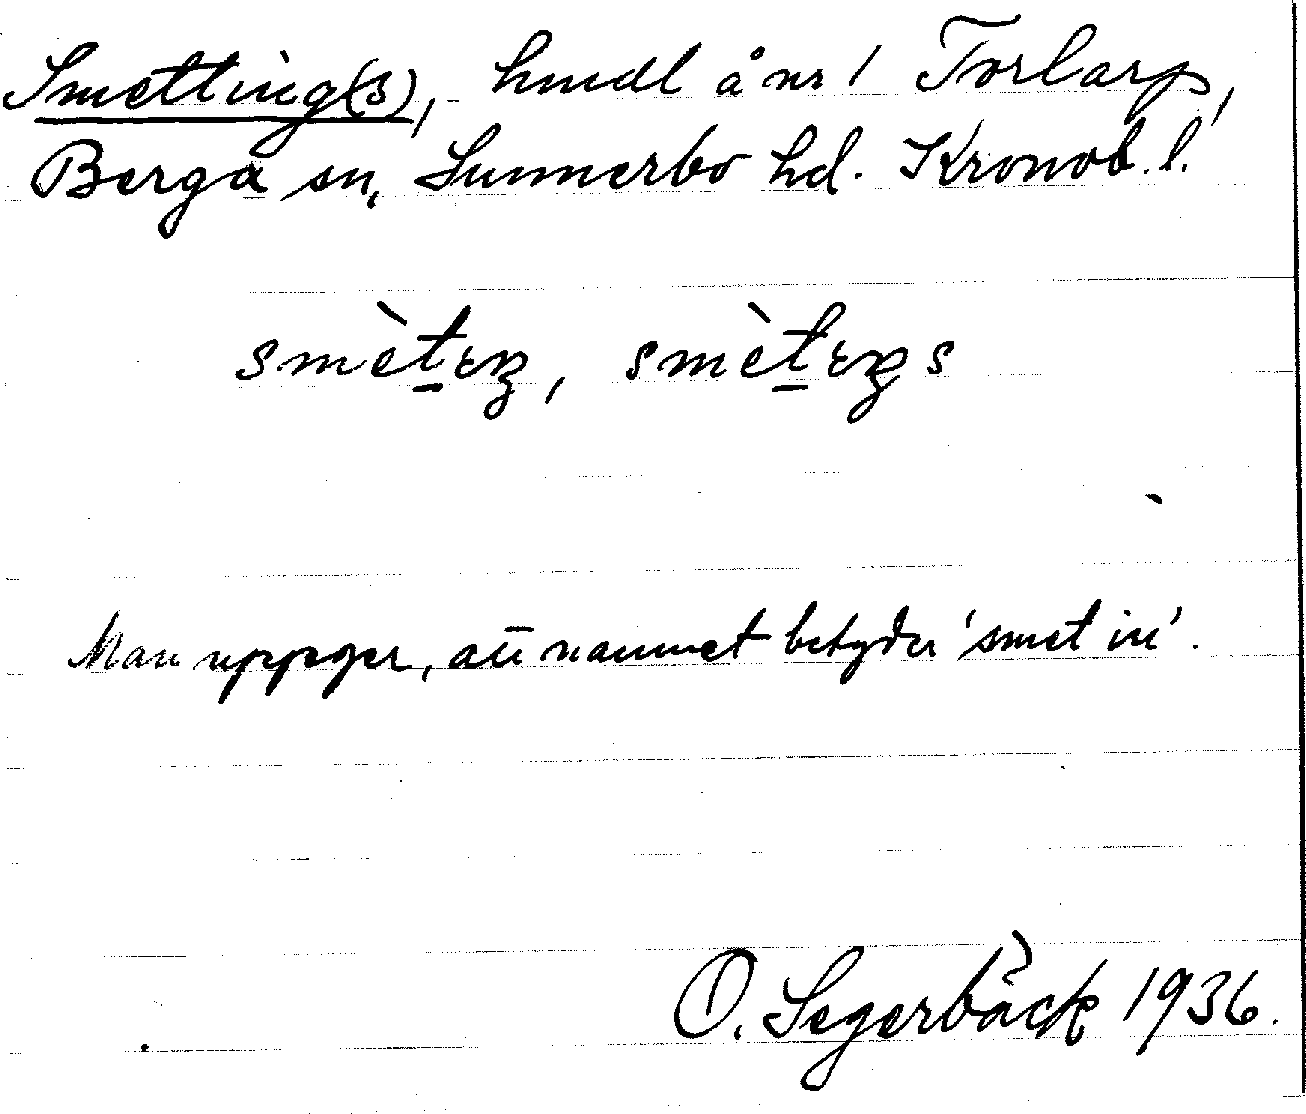 Smetting(s), hmdl å nr 1 Torlarp,
Berga sn, Sunnerbo hd. Kronob. l.
smètıŋ, smètıŋs
Man uppger, att namnet betyder 'smet in'.
O. Segerbäck 1936.